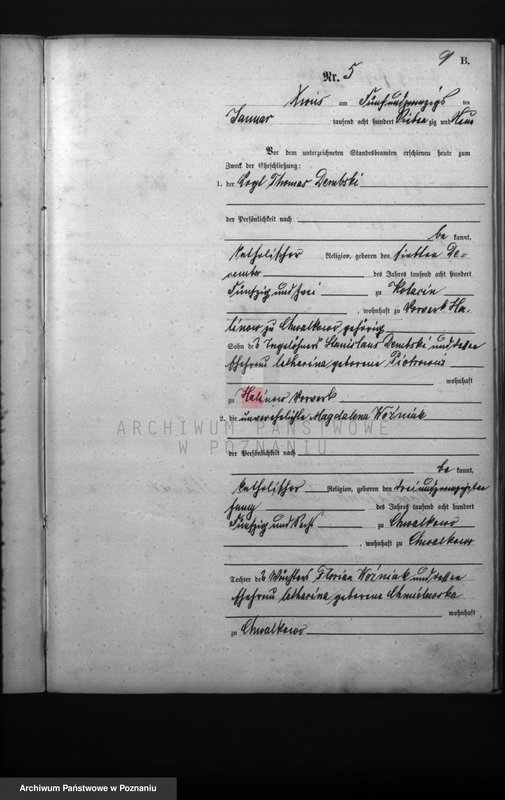 9
B.
Nr. 5
Xions am Fünfundzwanzigsten
Januar tausend acht hundert Siebenzig und Neun
Vor dem unterzeichneten Standesbeamten erschienen heute zum
Zweck der Eheschließung:
1. der Vogt Thomas Dembski
der Persönlichkeit nach
bekannt,
katholischer Religion, geboren den siebten De-
cember des Jahres tausend acht hundert
Fünfzig und zwei zu Kotacin
, wohnhaft zu Vorwerk Ha-
linow zu Chwalkowo gehörig
Sohn des Tagelöhners Stanislaus Dembski und dessen
Ehefrau Catharina geborene Piotrowic
wohnhaft
zu Halinow Vorwerk
2. die unverehelichte Magdalena Woźniak
der Persönlichkeit nach
bekannt,
katholischer Religion, geboren den dreiundzwanzigsten
des Jahres tausend acht hundert
Fünfzig und Sechs zu Chwalkowo
, wohnhaft zu Chwalkowo
Tochter des Florian Woźniak und dessen
Ehefrau Catharina geborene
wohnhaft
zu Chwalkowo
ARCHIWUM PAŃSTWOWE
W POZNANIU
Archiwum Państwowe w Poznaniu